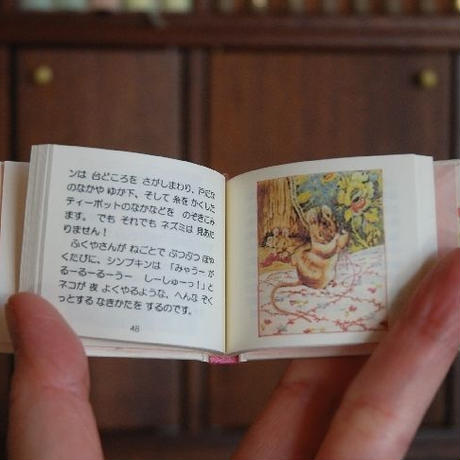 ンは 台どころを さがしまわり、戸だな
のなかや ゆか下、そして 糸を かくした
ティーポットのなかなどを のぞきこみ
ます。 でも それでも ネズミは 見あた
りません！
ふくやさんが ねごとで ぶつぶつ ぼや
くたびに、シンプキンは 「みゃうーが
るーるーるーうー しーしゅーっ！」と
ネコが 夜 よくやるような、へんな ぞく
っとする なきかたを するのです。
48